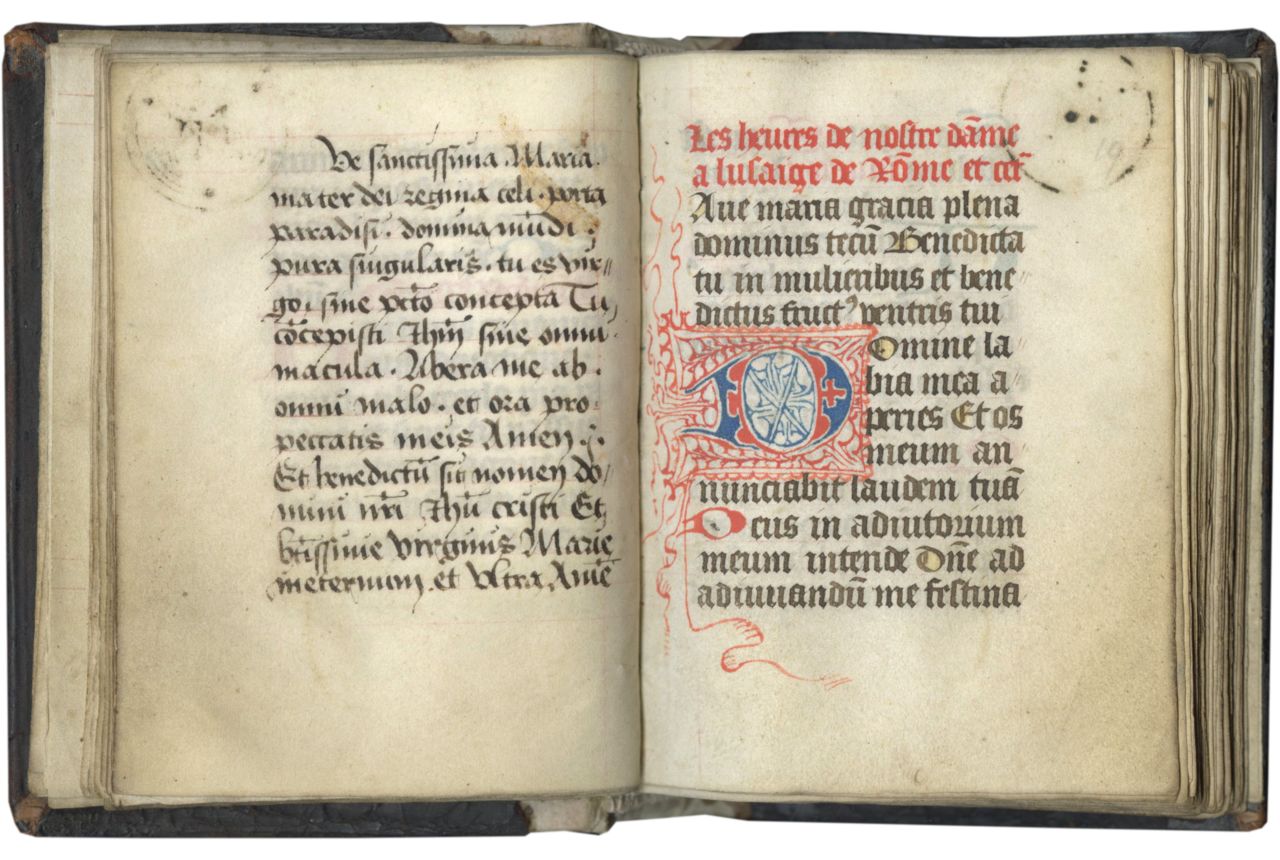 Ve sanctissima Maria.
mater dei regina celi. porta
paradisi. domina mūdi.
pura singularis. tu es vir⸗
go, sine pctō concepta Tu
cōcepisti Ihm̄ sine omni
macula. Libera me ab.
omni malo. et ora pro
peccatis meis Amen.
Et benedictū sit nomen do⸗
mini nr̄i Ihū cristi Et
btīssime virginis Marie
ineternum. et vltra. Amē
Les heures de nostre dāme
a lusaige de Rōme et cet̄
Aue maria gracia plena
dominus tecū Benedicta
tu in mulieribus et bene⸗
dictus fructꝰ ventris tui
Domine la⸗
bia mea a⸗
peries Et os
meum an⸗
nunciabit laudem tuā
Deus in adiutorium
meum intende Dn̄e ad
adiuuandū me festina
19